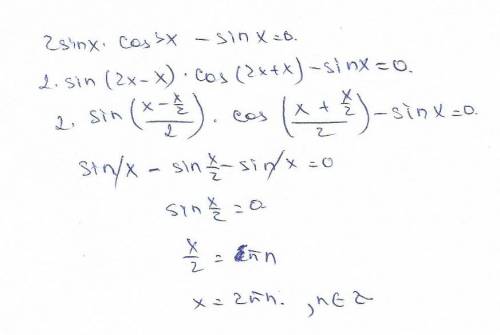 2sinx · cos3x − sinx = 0.
2 · sin(2x−x) · cos(2x+x) − sinx = 0.
2 · sin((x − x/2)/2) · cos((x + x/2)/2) − sinx = 0.
sin x − sin x/2 − sin x = 0
sin x/2 = 0
x/2 = πn
x = 2πn. , n∈Z